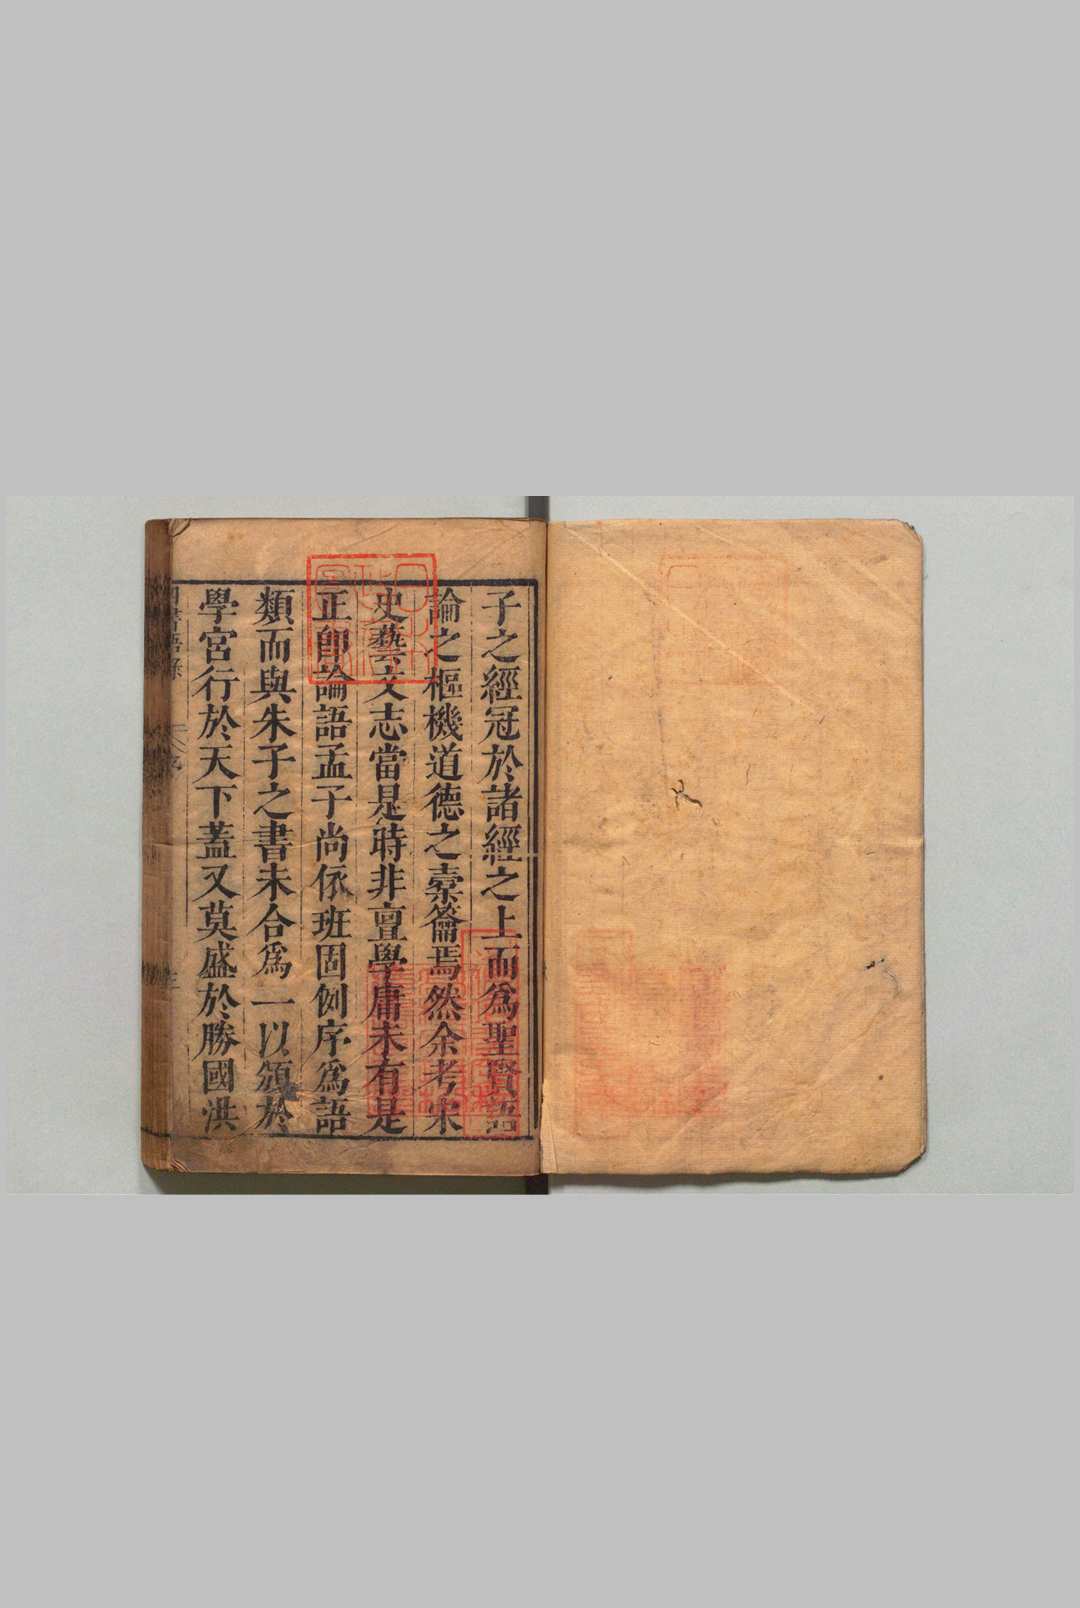 子之經冠於諸經之上而爲聖賢語
論之樞機道德之橐籥焉然余考宋
史藝文志當是時非亶學庸未有是
正即論語孟子尚依班固例序爲語
類而與朱子之書未合爲一以頒於
學宮行於天下蓋又莫盛於勝國洪